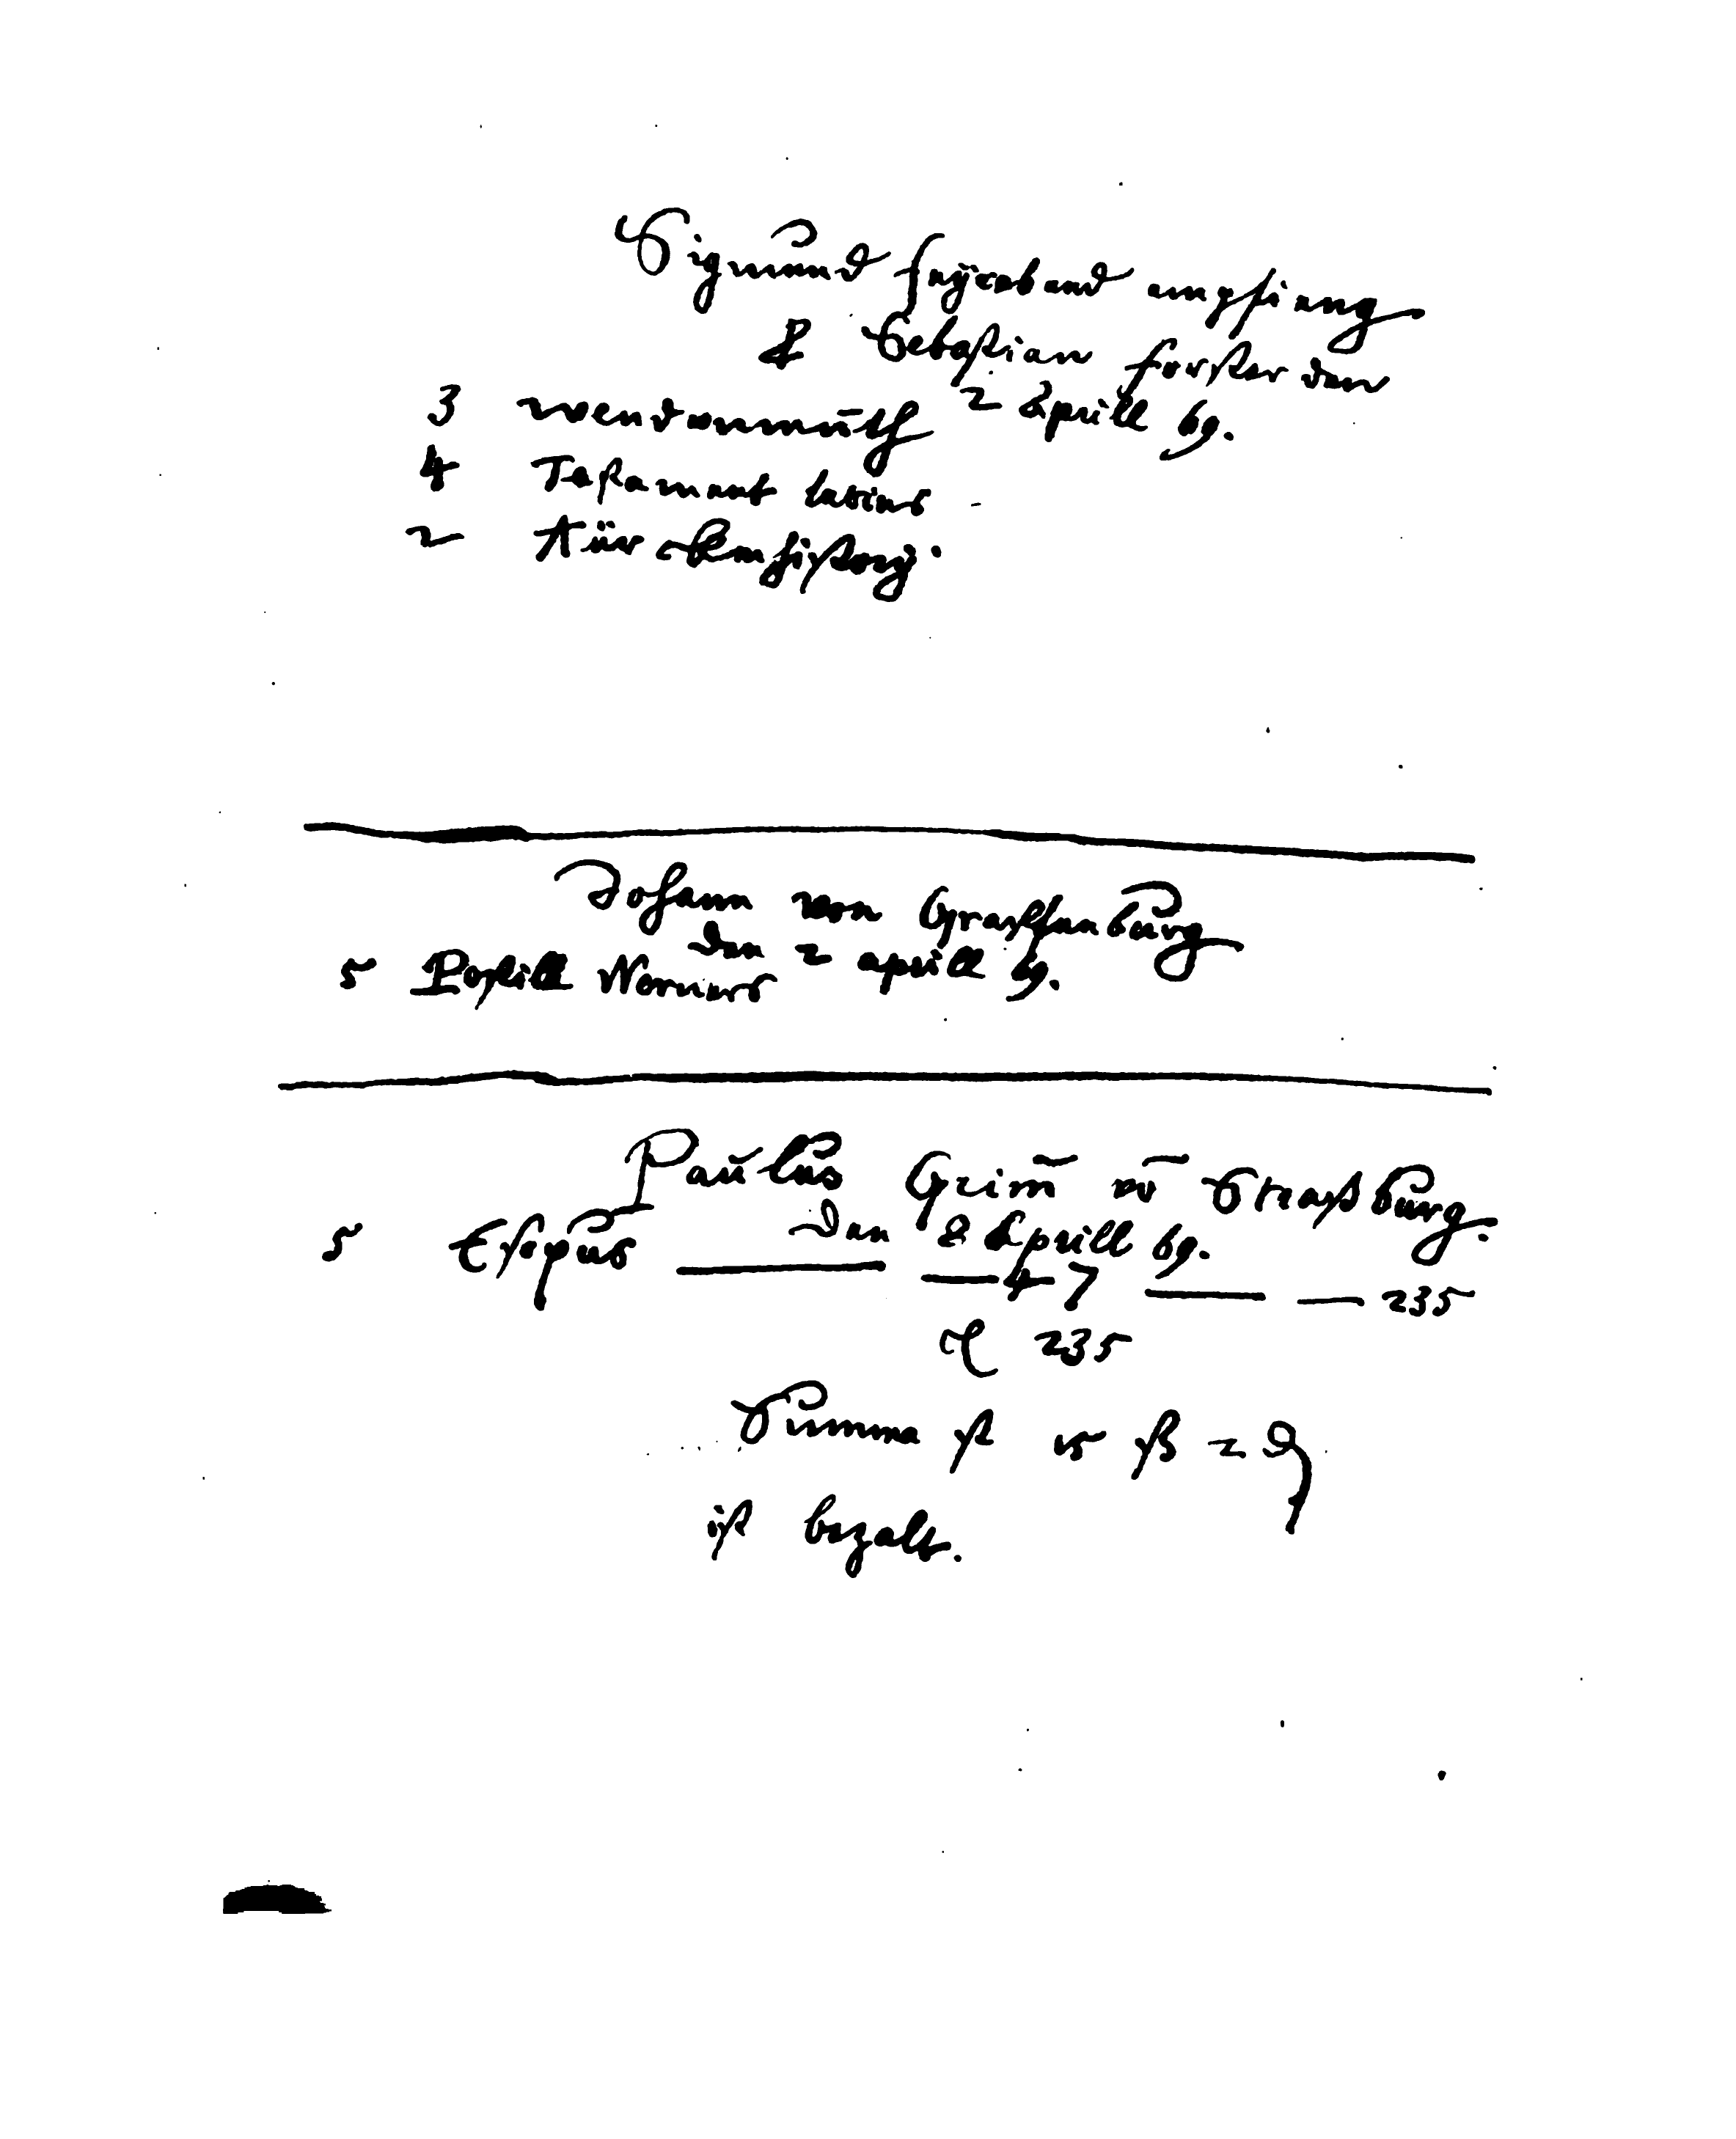 Sigmund feyrabend empfieng
Sebastian forster den
2 Aprill 69.
3 wendunmuth
4 Testament latins
2
Johann von
den 2 aprill 69.
5 Postill Womers
Paulus Grim von Straßburg.
den 2 Aprill 69.
5 Esopus 47 235
235
Summa fl vj ß 2
ist bezalt.